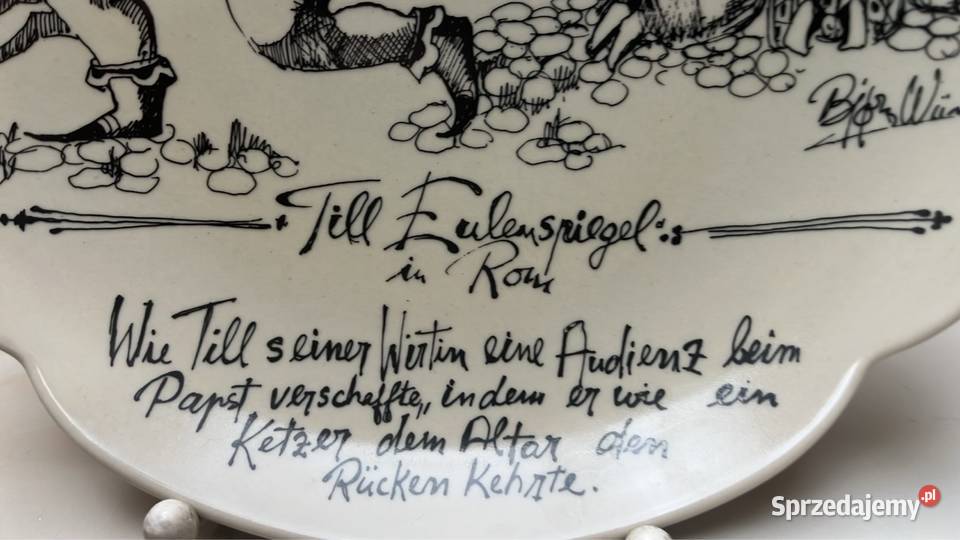 Björn
Till Eulenspiegel
in Rom
Wie Till seiner Wirtin eine Audienz beim
Papst verschaffte, indem er wie ein
Ketzer dem Altar den
Rücken Kehrte.
Sprzedajemy.pl